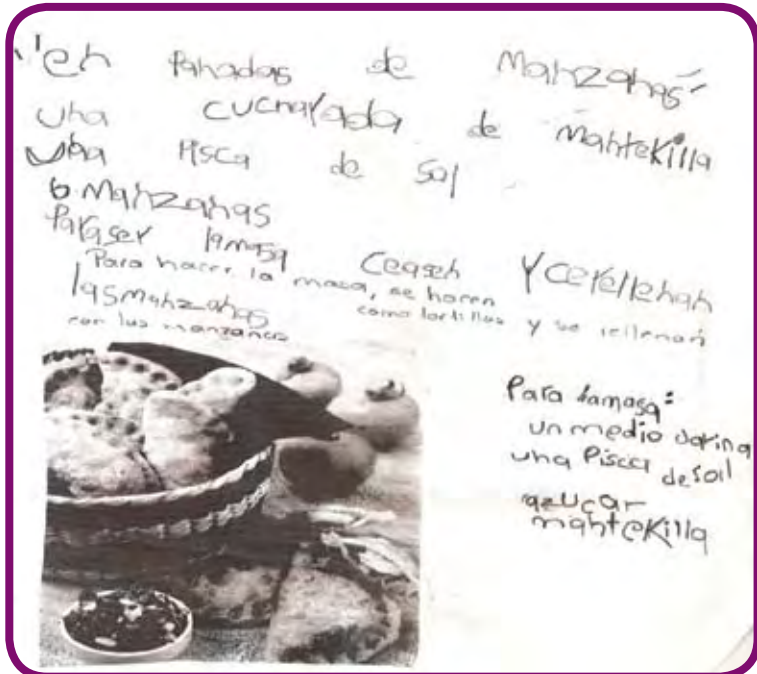 en panadas de Manzanas
una cucharada de mantekilla
una pisca de sal
6 Manzanas
Paraser lamasa ceasen Y cerellenan
Para hacer la masa, se hacen como tortillas y se rellenan
lasmanzanas
con las manzanas
Para lamasa:
un medio varina
una Pisca de soil
azucar
mantekilla